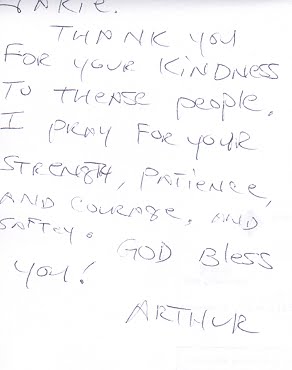 THANK YOU
FOR YOUR KINDNESS
TO THENSE people.
I PRAY FOR YOUR
STRENGTH, PATIENCE,
AND COURAGE, AND
SAFTEY. GOD Bless
you!
ARTHUR